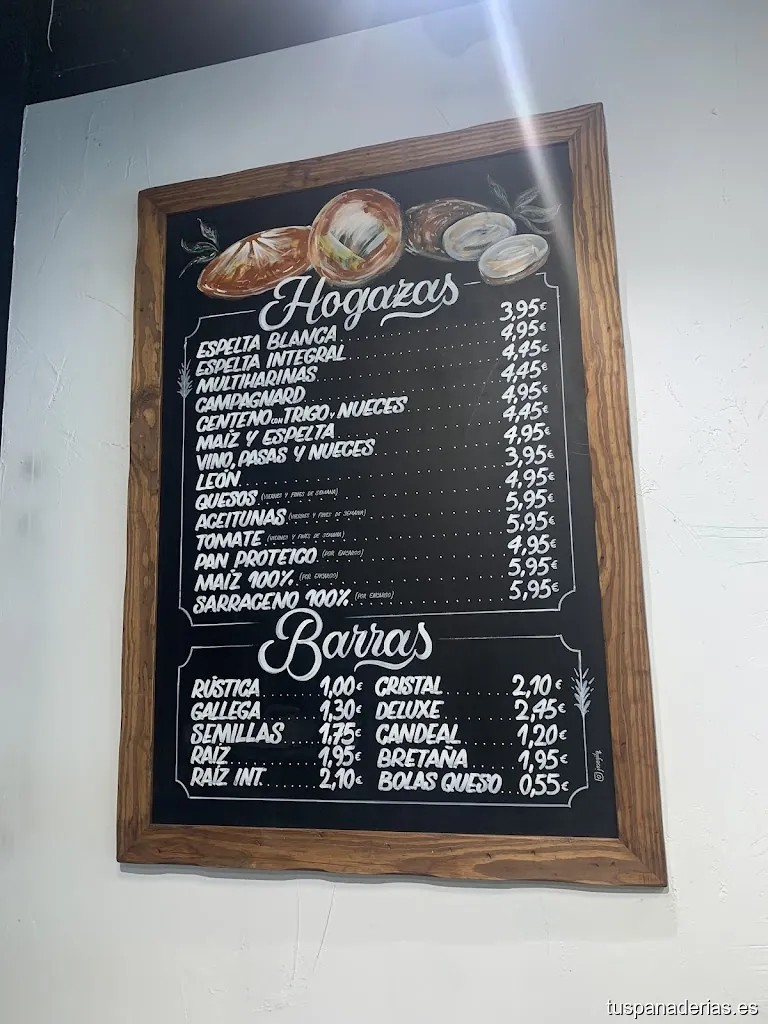 Hogazas
ESPELTA BLANCA 3,95€
ESPELTA INTEGRAL 4,95€
MULTIHARINAS 4,45€
CAMPAGNARD 4,45€
CENTENO CON TRIGO Y NUECES 4,95€
MAÍZ Y ESPELTA 4,45€
VINO, PASAS Y NUECES 4,95€
LEÓN 3,95€
QUESOS (VIERNES Y FINES DE SEMANA) 4,95€
ACEITUNAS (VIERNES Y FINES DE SEMANA) 5,95€
TOMATE (VIERNES Y FINES DE SEMANA) 5,95€
PAN PROTEICO (POR ENCARGO) 4,95€
MAÍZ 100% (POR ENCARGO) 5,95€
SARRACENO 100% (POR ENCARGO) 5,95€
Barras
RÚSTICA 1,00€ CRISTAL 2,10€
GALLEGA 1,30€ DELUXE 2,45€
SEMILLAS 1,75€ CANDEAL 1,20€
RAÍZ 1,95€ BRETAÑA 1,95€
RAÍZ INT. 2,10€ BOLAS QUESO 0,55€
tuspanaderias.es